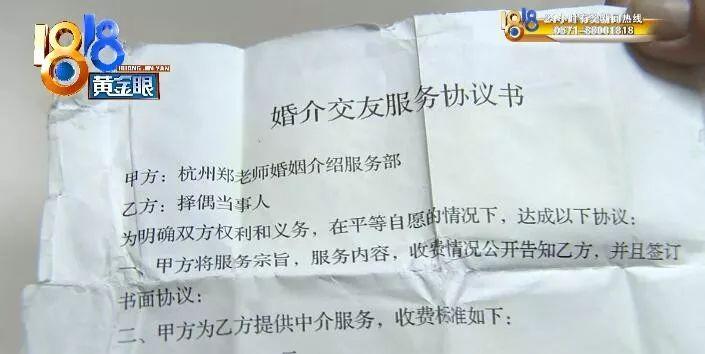 1818
HUANG JIN YAN
黄金眼
24小时有奖新闻热线
0571-88001818
婚介交友服务协议书
甲方：杭州郑老师婚姻介绍服务部
乙方：择偶当事人
为明确双方权利和义务，在平等自愿的情况下，达成以下协议：
一、甲方将服务宗旨，服务内容，收费情况公开告知乙方，并且签订
书面协议；
二、甲方为乙方提供中介服务，收费标准如下：